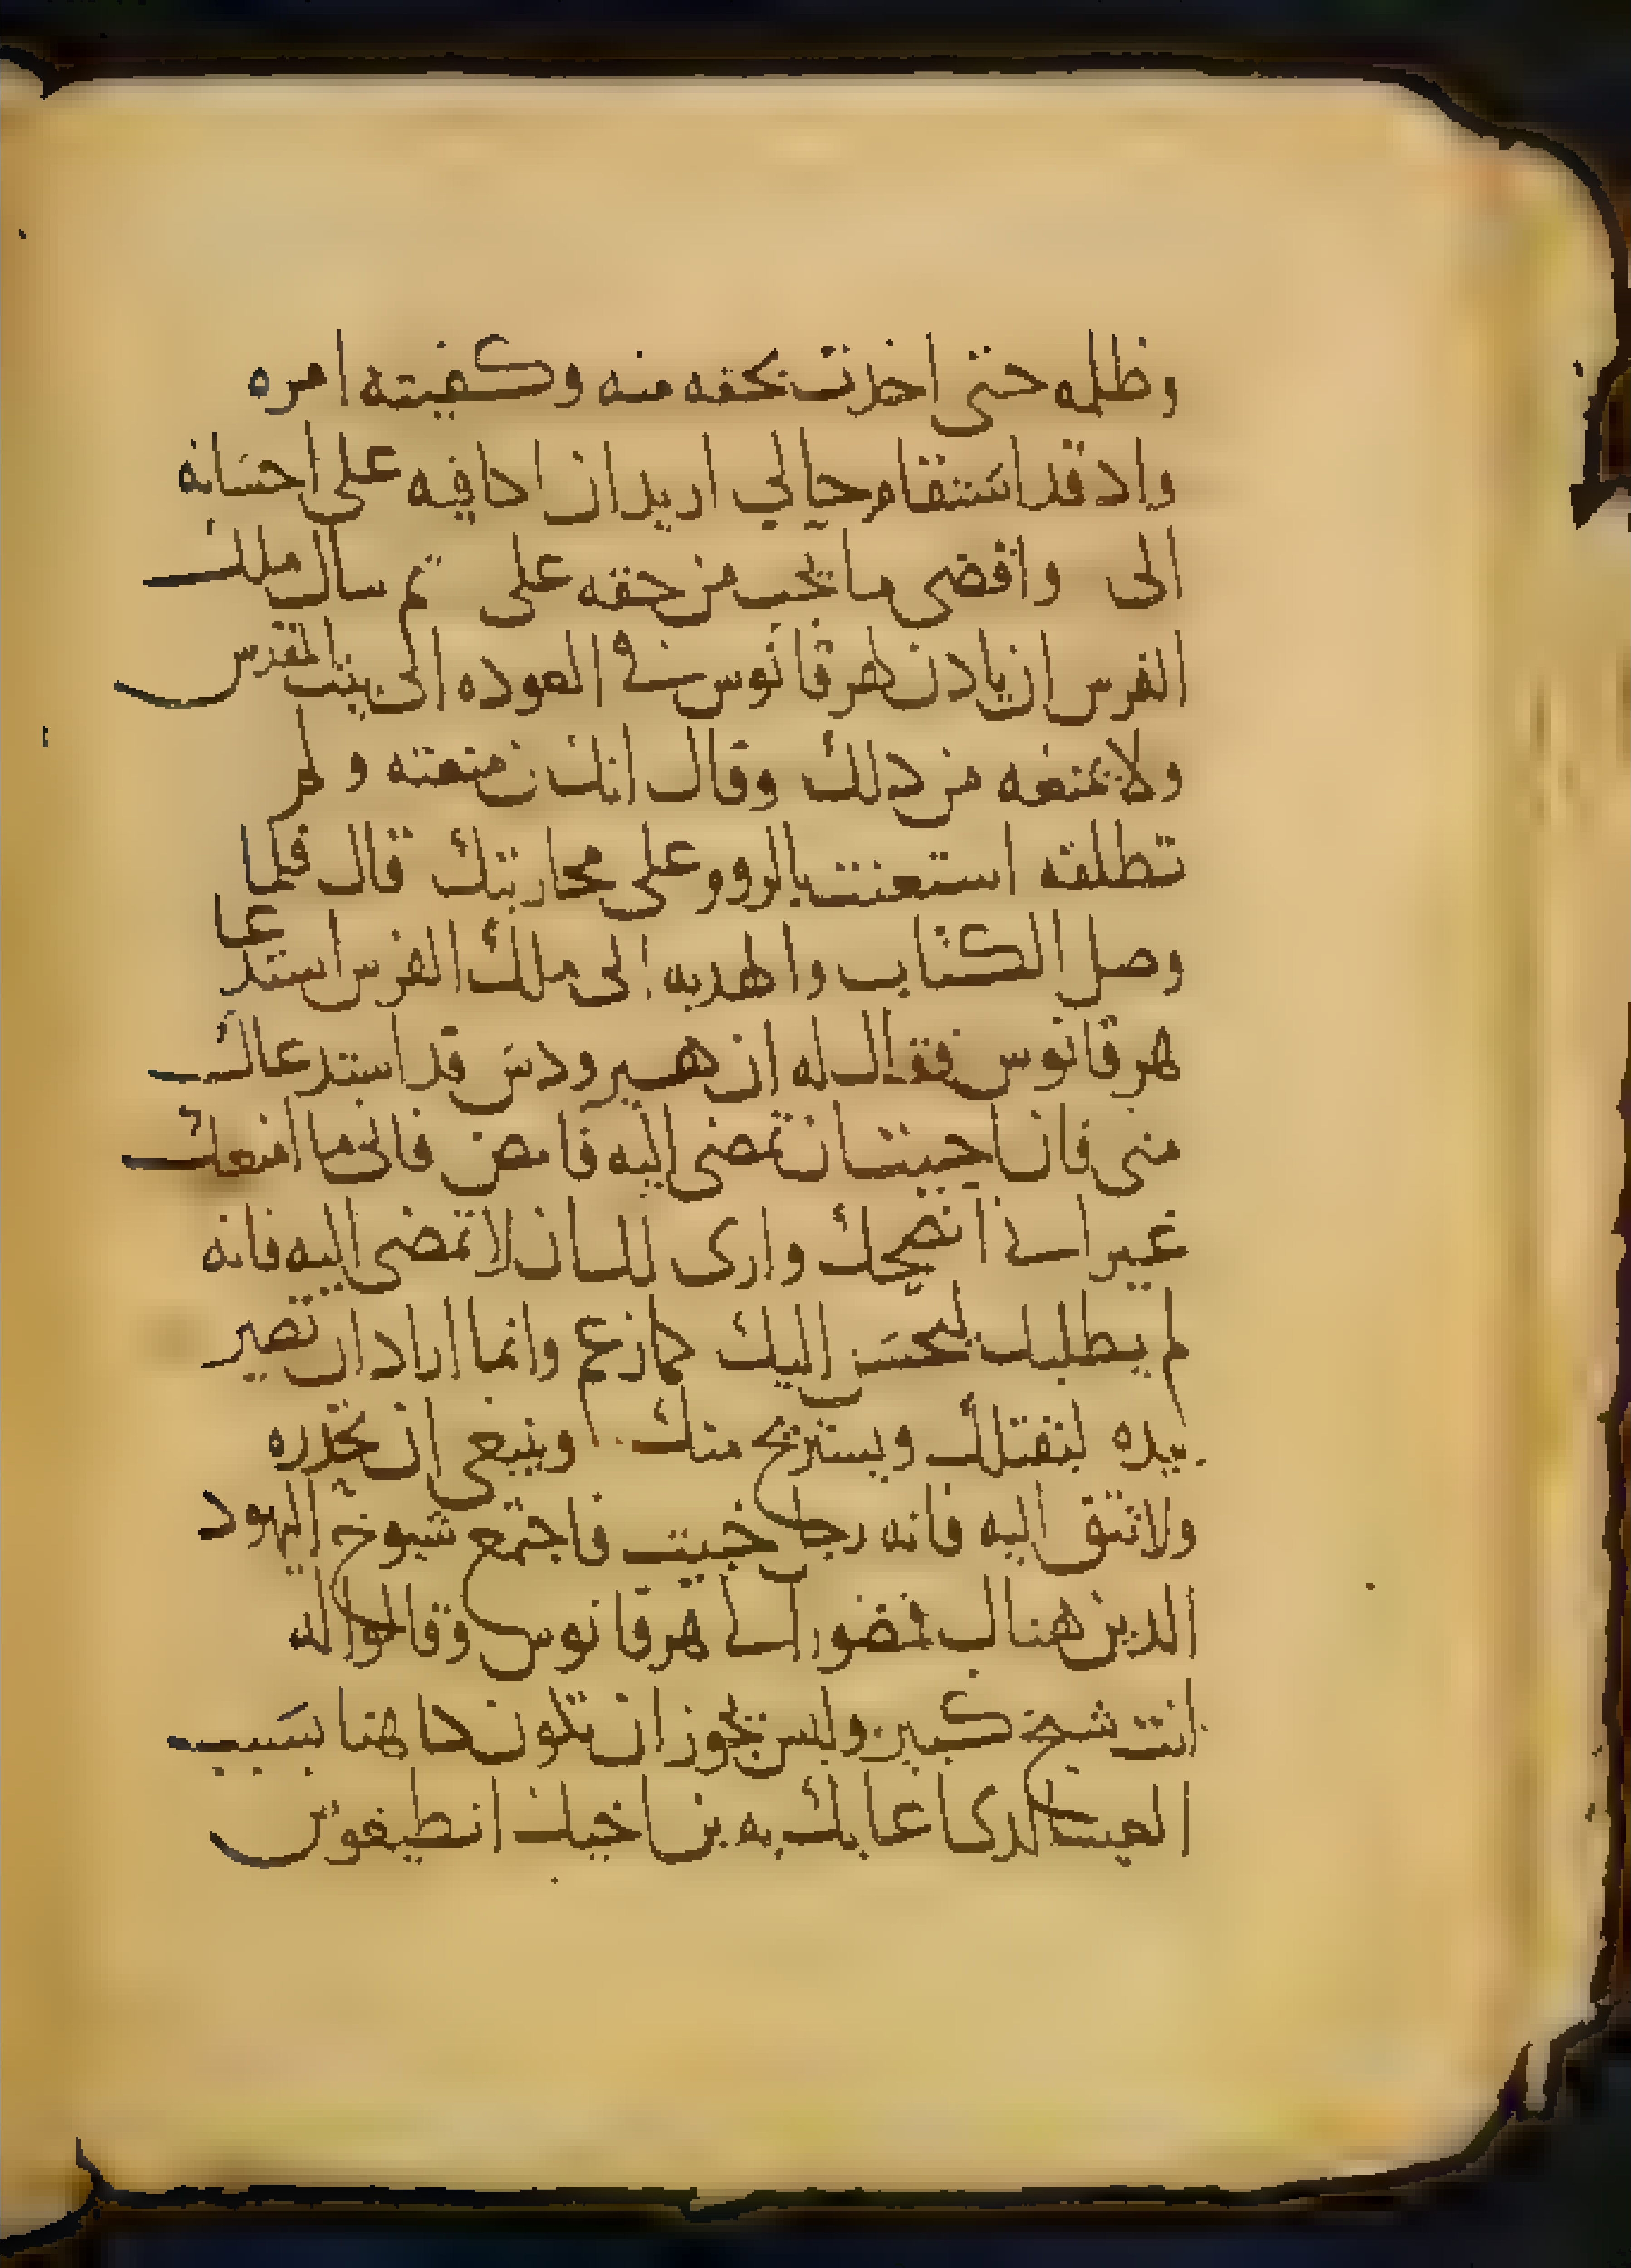 وظلمه حتى اخذت بحقه منه وكفيته امره
واد قد استقام حالي اريد ان اكافيه على احسانه
الى واقضى ما يجب من حقه على تم سال ملك
الفرس ان يادن لهرقانوس في العوده الى بيت المقدس
ولا يمنعه من دلك وقال انك ان منعته ولم
تطلقه استعنت بالروم على محاربتك قال فلما
وصل الكتاب والهديه الى ملك الفرس استدعا
هرقانوس فقال له ان هيرودس قد استدعاك
منى فان احببت ان تمضى اليه فامض فانى ما امنعك
غير انى انصحك وارى لك ان لا تمضى اليه فانه
لم يطلبك ليحسن اليك كما زعم وانما اراد ان تصير
بيده ليقتلك ويستريح منك وينبغى ان تحذره
ولا تتق اليه فانه رجل خبيت فاجتمع شيوخ اليهود
الدين هناك فمضوا الى هرقانوس وقالوا له
انت شيخ كبير وليس يجوز ان تكون هاهنا بسبب
العيب الدى عابك به بن اخيك انطيغوس